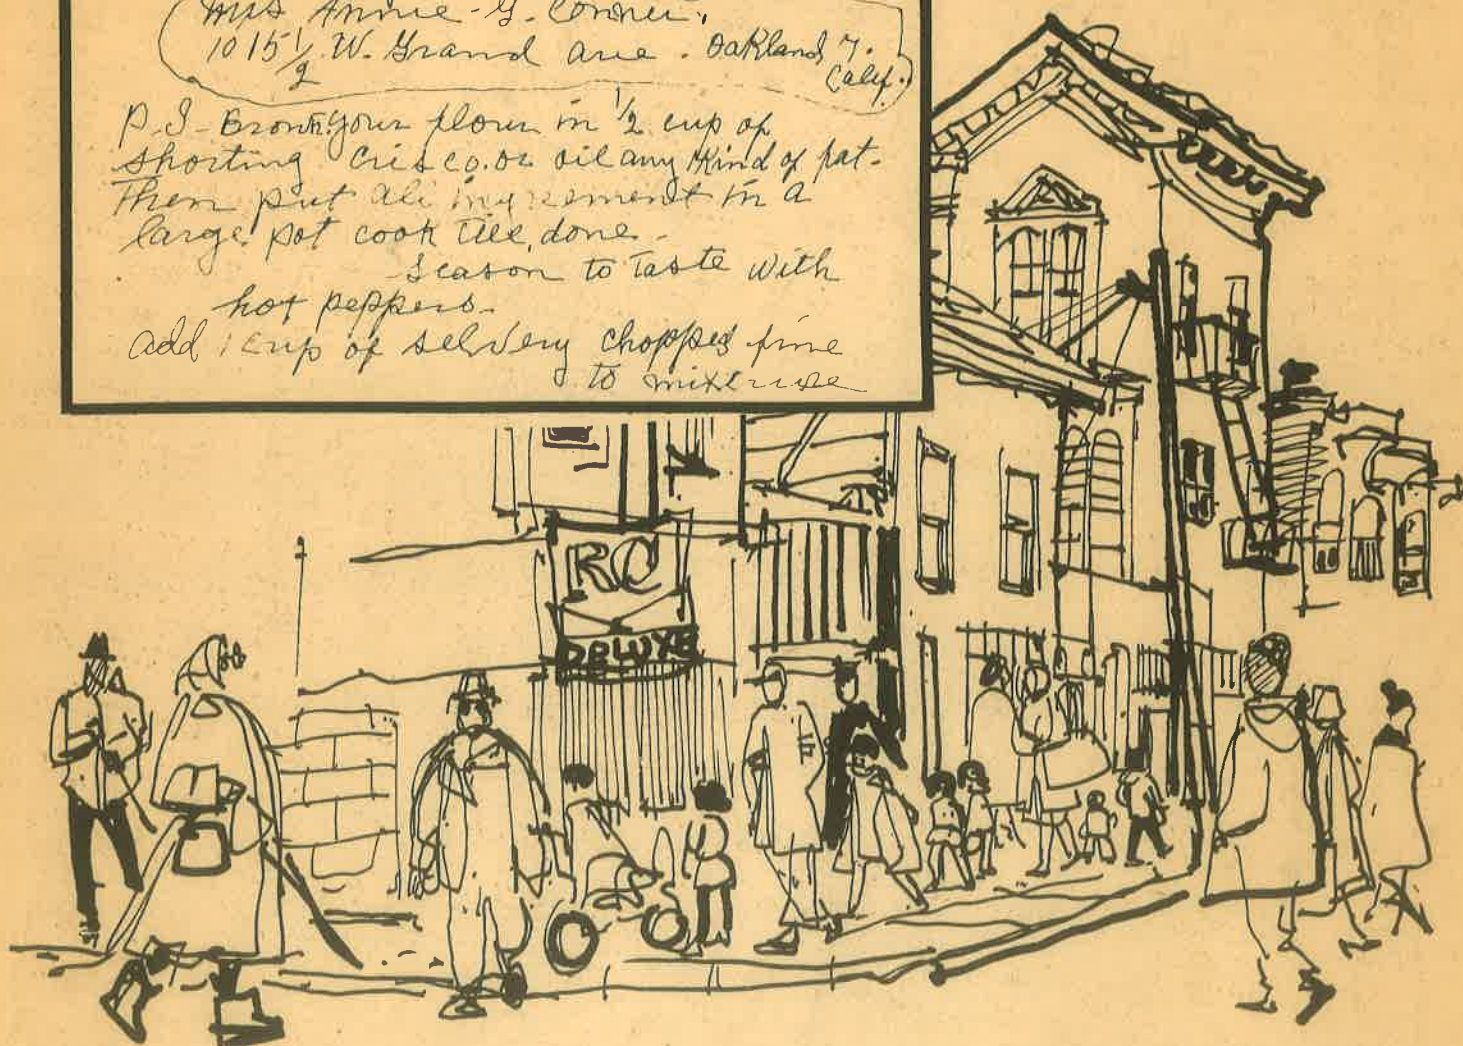 Mrs Annie - G. Conner.
1015 1/2 W. Grand ave. Oakland, 7.
Calif.
P.S - Brown your flour in 1/2 cup of
shorting Crisco. or oil any kind of fat.
Then put all in a
large pot cook till done.
Season to Taste with
hot peppers.
add 1 cup of selvery chopped fine
to mixture
RC
DELUXE